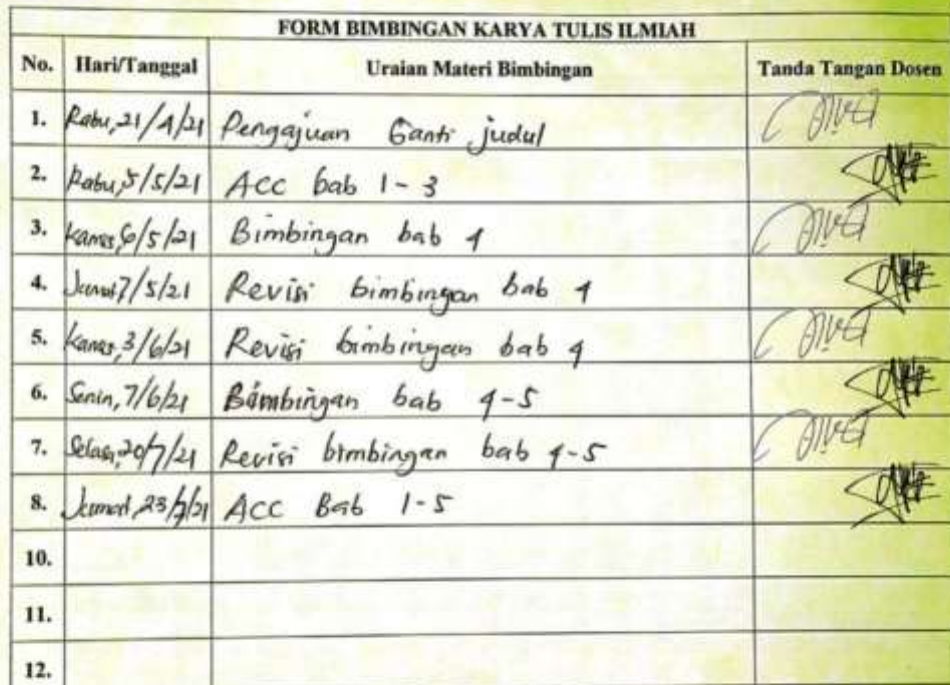 FORM BIMBINGAN KARYA TULIS ILMIAH
No. Hari/Tanggal Uraian Materi Bimbingan Tanda Tangan Dosen
1. Rabu, 21/4/21 Pengajuan Ganti judul
2. Rabu, 5/5/21 ACC bab 1-3
3. Kamis, 6/5/21 Bimbingan bab 4
4. Jumat 7/5/21 Revisi bimbingan bab 4
5. Kamis, 3/6/21 Revisi bimbingan bab 4
6. Senin, 7/6/21 Bimbingan bab 4-5
7. Selasa, 20/7/21 Revisi bimbingan bab 4-5
8. Jumat, 23/7/21 ACC Bab 1-5
10.
11.
12.